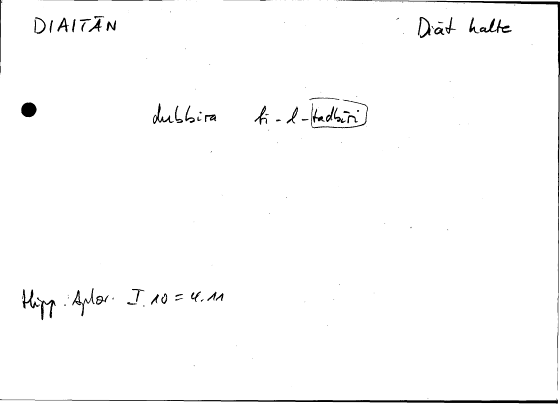 DIAITĀN Diät halte
dubbira bi-l-tadbīri
Hipp. Aphor. I.10 = 4.11